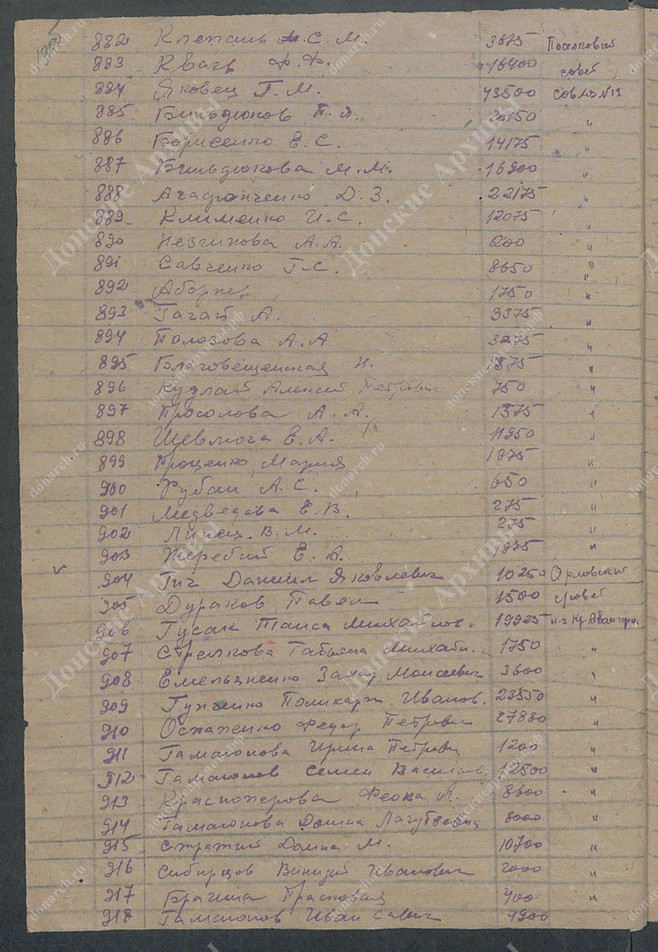 882 С. М. 3675 Поселковый
883 Квач Ф. Ф. 16400 совет
884 Яковец Г. М. 43500 совхоз N13
885 Бильдюков П. 20150 "
886 Борисенко Е. С. 14175 "
887 Бильдюкова М. М. 16900 "
888 Агафонченко Д. З. 22175 "
889 Клименко И. С. 12075 "
890 А. А. 200 "
891 Савченко Г. С. 8650 "
892 1750 "
893 Гагай А. 3375 "
894 Полозова А. А 3275 "
895 Благовещенская Н. 1375 "
896 Кудлай Алексей Петрович 750 "
897 Просолова А. А. 1375 "
898 Шевлюга Е. А. 11950 "
899 Проценко Мария 1975 "
900 Рубан А. С. 650 "
901 Медведева Е. В. 275 "
902 Липец В. М. 275 "
903 Жеребий Е. А. "
904 Гич Даниил Яковлевич 10250 Орловский
905 Дураков Павел 1500 совет
906 Гусак Таиса Михайлов. 19925
907 Стрелкова Татьяна Михайл. 1750 "
908 Емельяненко Захар Моисеевич 3600 "
909 Гунченко Поликарп Иванов. 23550 "
910 Федор Петрович 27800 "
911 Гамаюнова Ирина Петровн 1200 "
912 Гамаюнов Семен Василев. 12500 "
913 Красножерова Феока 8600 "
914 Гамаюнова Домна 8000 "
915 Стражий Домна М. 10700 "
916 Сибирцов Иванович 2000 "
917 Брагина Прасковия 400 "
918 Гамаюнов Иван Савич 4900 "